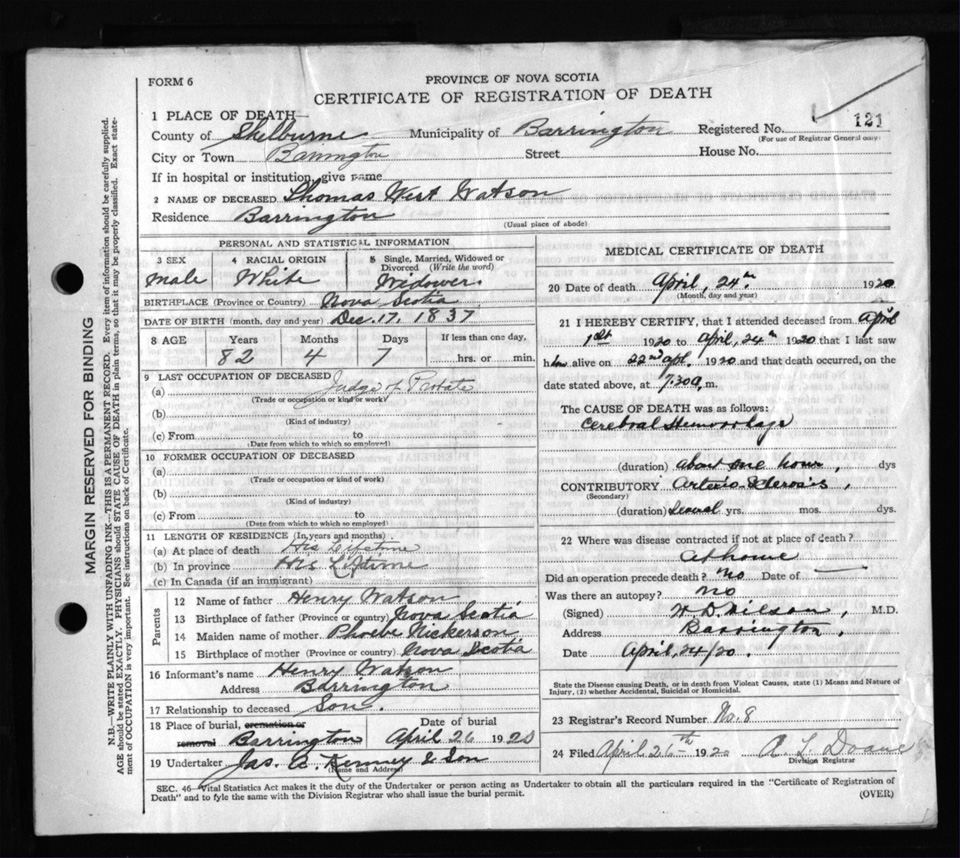 FORM 6
PROVINCE OF NOVA SCOTIA
CERTIFICATE OF REGISTRATION OF DEATH
1 PLACE OF DEATH—
County of Shelburne Municipality of Barrington Registered No. 121
(For use of Registrar General only)
City or Town Barrington Street House No.
If in hospital or institution, give name
2 NAME OF DECEASED Thomas West Watson
Residence Barrington
(Usual place of abode)
PERSONAL AND STATISTICAL INFORMATION
3 SEX 4 RACIAL ORIGIN 5 Single, Married, Widowed or Divorced (Write the word)
Male White Widower
BIRTHPLACE (Province or Country) Nova Scotia
DATE OF BIRTH (month, day and year) Dec. 17, 1837
8 AGE Years Months Days If less than one day,
82 4 7 hrs. or min.
9 LAST OCCUPATION OF DECEASED
(a) Judge of Probate
(Trade or occupation or kind or work)
(b)
(Kind of industry)
(c) From to
(Date from which to which so employed)
10 FORMER OCCUPATION OF DECEASED
(a)
(Trade or occupation or kind of work)
(b)
(Kind of industry)
(c) From to
(Date from which to which so employed)
11 LENGTH OF RESIDENCE (In years and months)
(a) At place of death His Lifetime
(b) In province His Lifetime
(c) In Canada (if an immigrant)
Parents
12 Name of father Henry Watson
13 Birthplace of father (Province or country) Nova Scotia
14 Maiden name of mother Phoebe Nickerson
15 Birthplace of mother (Province or country) Nova Scotia
16 Informant's name Henry Watson
Address Barrington
17 Relationship to deceased Son.
18 Place of burial, cremation or removal Barrington Date of burial April 26 1920
19 Undertaker Jas. A. Kenney & Son
(Name and Address)
MEDICAL CERTIFICATE OF DEATH
20 Date of death April, 24th 1920
(Month, day and year)
21 I HEREBY CERTIFY, that I attended deceased from April
1st 1920 to April, 24th 1920 that I last saw
him alive on 22nd Apl. 1920 and that death occurred, on the
date stated above, at 7.30 a, m.
The CAUSE OF DEATH was as follows:
Cerebral Hemorrhage
(duration) about one hour, dys
CONTRIBUTORY Arterio-Sclerosis,
(Secondary)
(duration) Several yrs. mos. dys.
22 Where was disease contracted if not at place of death?
At home
Did an operation precede death? no Date of
Was there an autopsy? no
(Signed) H. D. Wilson, M.D.
Address Barrington,
Date April, 24/20.
State the Disease causing Death, or in death from Violent Causes, state (1) Means and Nature of
Injury, (2) whether Accidental, Suicidal or Homicidal.
23 Registrar's Record Number No. 8
24 Filed April 26th 1920 A. L. Doane
Division Registrar
SEC. 46—Vital Statistics Act makes it the duty of the Undertaker or person acting as Undertaker to obtain all the particulars required in the "Certificate of Registration of
Death" and to fyle the same with the Division Registrar who shall issue the burial permit. (OVER)
MARGIN RESERVED FOR BINDING
N.B.—WRITE PLAINLY WITH UNFADING INK—THIS IS A PERMANENT RECORD. Every item of information should be carefully supplied.
AGE should be stated EXACTLY. PHYSICIANS should STATE CAUSE OF DEATH in plain terms, so that it may be properly classified. Exact state-
ment of OCCUPATION is very important. See instructions on back of Certificate.